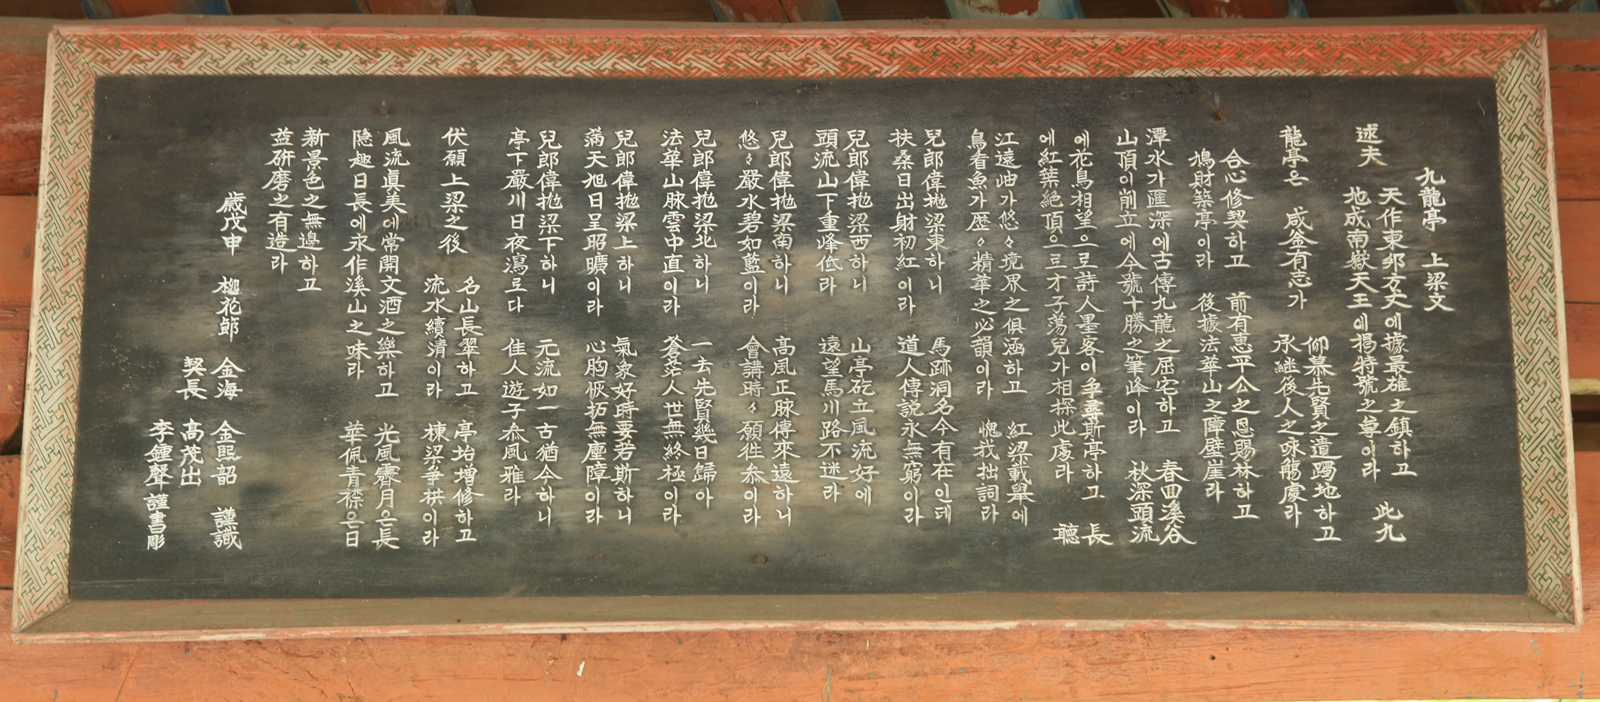 九龍亭 上梁文
逑夫 天作東邦方丈에據最雄之鎭하고
地成南嶽天王에揭特號之尊이라 此九
龍亭은 咸釜有志가 仰慕先賢之遺躅地하고
承繼後人之咏觴處라
合心修契하고 前有惠平公之恩賜林하고
鳩財築亭이라 後據法華山之障壁崖라
潭水가匯深에古傳九龍之屈宅하고 春回溪谷
山頂이削立에今號十勝之筆峰이라 秋深頭流
에花鳥相望으로詩人墨客이爭尋斯亭하고 長
에紅葉絶頂으로才子蕩兒가相探此處라 聽
江遠岫가悠々境界之俱涵하고 紅梁載擧에
鳥看魚가歷々精華之必韻이라 愧我拙詞라
兒郎偉抛梁東하니 馬跡洞名今有在인데
扶桑日出射初紅이라 道人傳説永無窮이라
兒郎偉抛梁西하니 山亭矻立風流好에
頭流山下重峰低라 遠望馬川路不迷라
兒郎偉抛梁南하니 高風正脉傳來遠하니
悠々嚴水碧如藍이라 會講時々願徃叅이라
兒郎偉抛梁北하니 一去先賢幾日歸아
法華山脉雲中直이라 蒼茫人世無終極이라
兒郎偉抛梁上하니 氣象好時要若斯하니
滿天旭日呈昭曠이라 心胸恢拓無塵障이라
兒郎偉抛梁下하니 元流如一古猶今하니
亭下嚴川日夜瀉로다 佳人遊子叅風雅라
伏願上梁之後 名山長翠하고 亭坮增修하고
流水續清이라 棟梁爭栱이라
風流眞美에常開文酒之樂하고 光風霽月은長
隐趣日長에永作溪山之味라 華佩青襟은日
新景色之無邊하고
益硏磨之有造라
歲戊申 梛花節 金海 金熙韶 謹識
契長 高茂出
李鍾聲 謹書彫